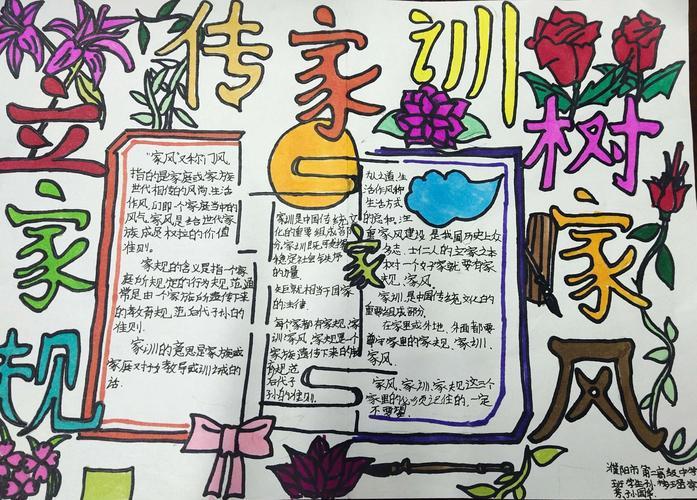 立家规
传家训
树家风
"家风"又称门风,
指的是家庭或家族
世代相传的风尚、生活
作风,即一个家庭当中的
风气。家风是给世代家
族成员树立的价值
准则。
家规的含义是指一个家
庭所规定的行为规范,通
常是由一个家族所遗传下来
的教育规范后代子孙的
准则。
家训的意思是家族或
家庭对子孙教导或训诫的
话。
家训是中国传统文
化的重要组成部
分,家训
稳定社会
的力量
就相当于国家
的法律。
每个家都有家规、家
训、家风,家规是一个
家族遗传下来的教
育规范
后代子
孙的准则。
家
生
活作风和
生活方式
的总和,注
重家风建设是我国历史上众
多志士仁人的立家之本
家规、家风。
家训是中国传统文化的
重要组成部分。
在家里或外地,外面都要
遵守家里的家规、家训、
家风。
家风、家训、家规这三个
家里的必须记住的,一定
不要忘
濮阳市第二高级中学